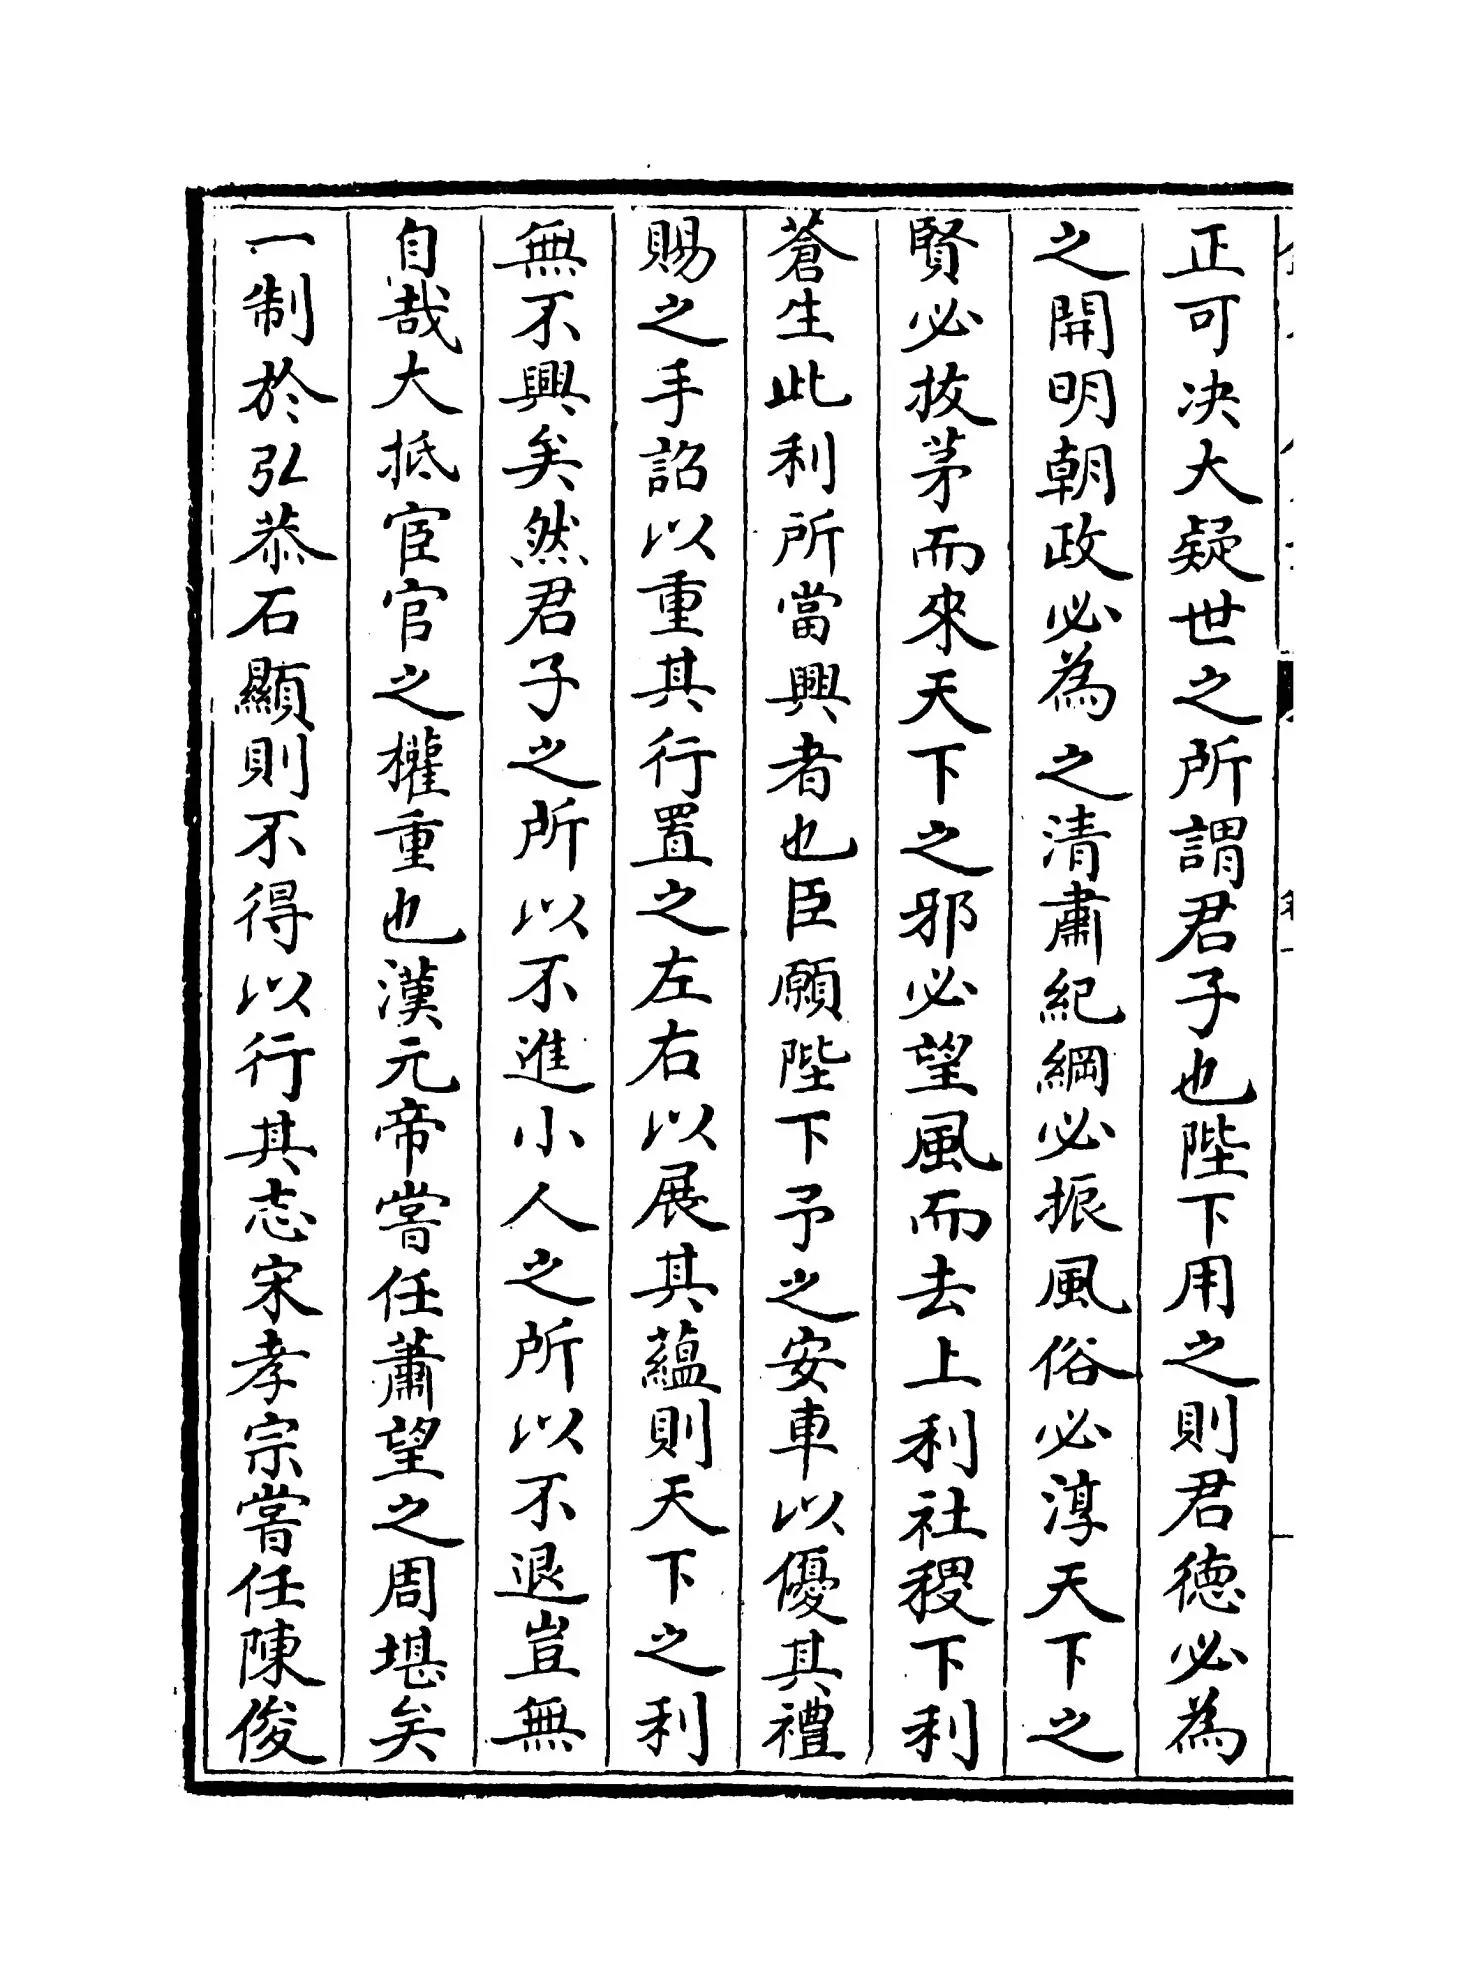 正可决大疑世之所謂君子也陛下用之則君德必為
之開明朝政必為之清肅紀綱必振風俗必淳天下之
賢必拔茅而來天下之邪必望風而去上利社稷下利
蒼生此利所當興者也臣願陛下予之安車以優其禮
賜之手詔以重其行置之左右以展其蘊則天下之利
無不興矣然君子之所以不進小人之所以不退豈無
自哉大抵宦官之權重也漢元帝嘗任蕭望之周堪矣
一制於弘恭石顯則不得以行其志宋孝宗嘗任陳俊